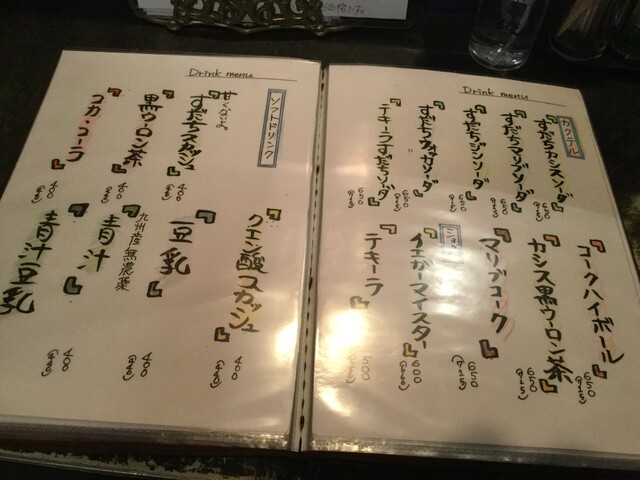 Drink menu
カクテル
すだちカシスソーダ
650
(715)
すだちマリブソーダ
650
(715)
すだちジンソーダ
すだちウォッカソーダ
650
(715)
テキーラすだちソーダ
コークハイボール
650
(715)
カシス黒ウーロン茶
650
(715)
マリブコーク
650
(715)
イエガーマイスター
600
(660)
テキーラ
500
Drink menu
ソフトドリンク
すだちスカッシュ
400
(440)
黒ウーロン茶
400
(440)
コカ・コーラ
400
(440)
クエン酸スカッシュ
400
(440)
豆乳
九州産無農薬
青汁
400
(440)
青汁豆乳
400
(440)